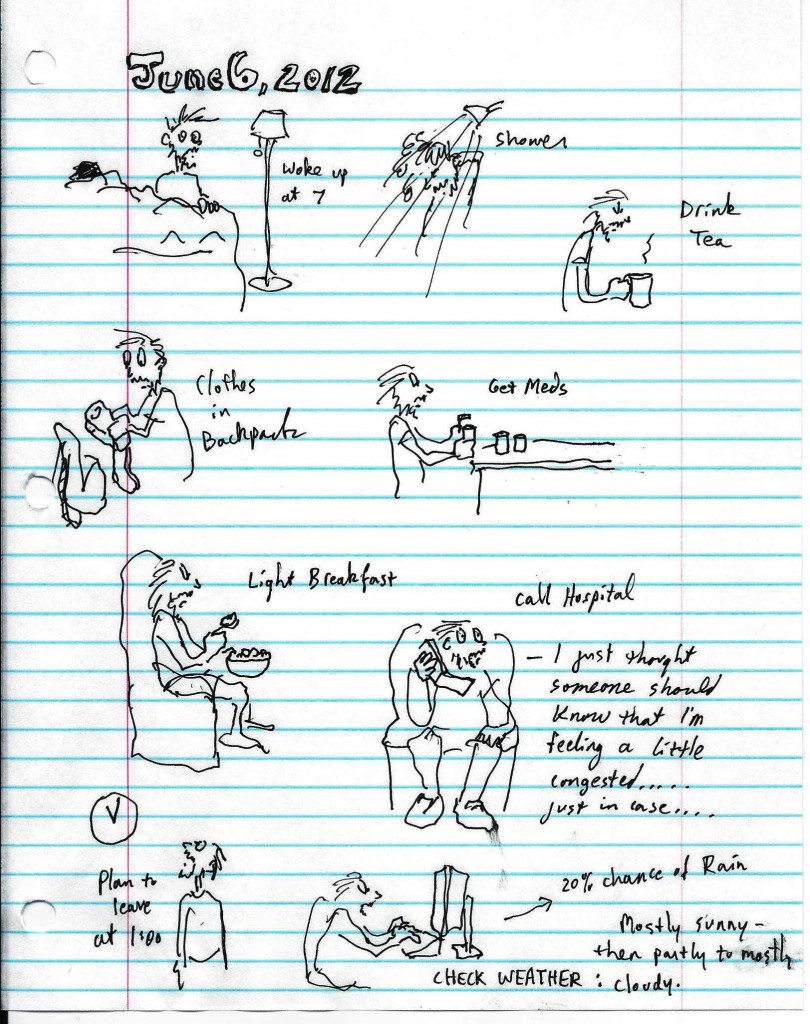 June 6, 2012
Woke up
at 7
Shower
Drink
Tea
Clothes
in
Backpack
Get Meds
Light Breakfast
Call Hospital
— I just thought
someone should
know that I'm
feeling a little
congested.....
just in case....
Plan to
leave
at 1:00
20% chance of Rain
Mostly sunny -
then partly to mostly
CHECK WEATHER : cloudy.